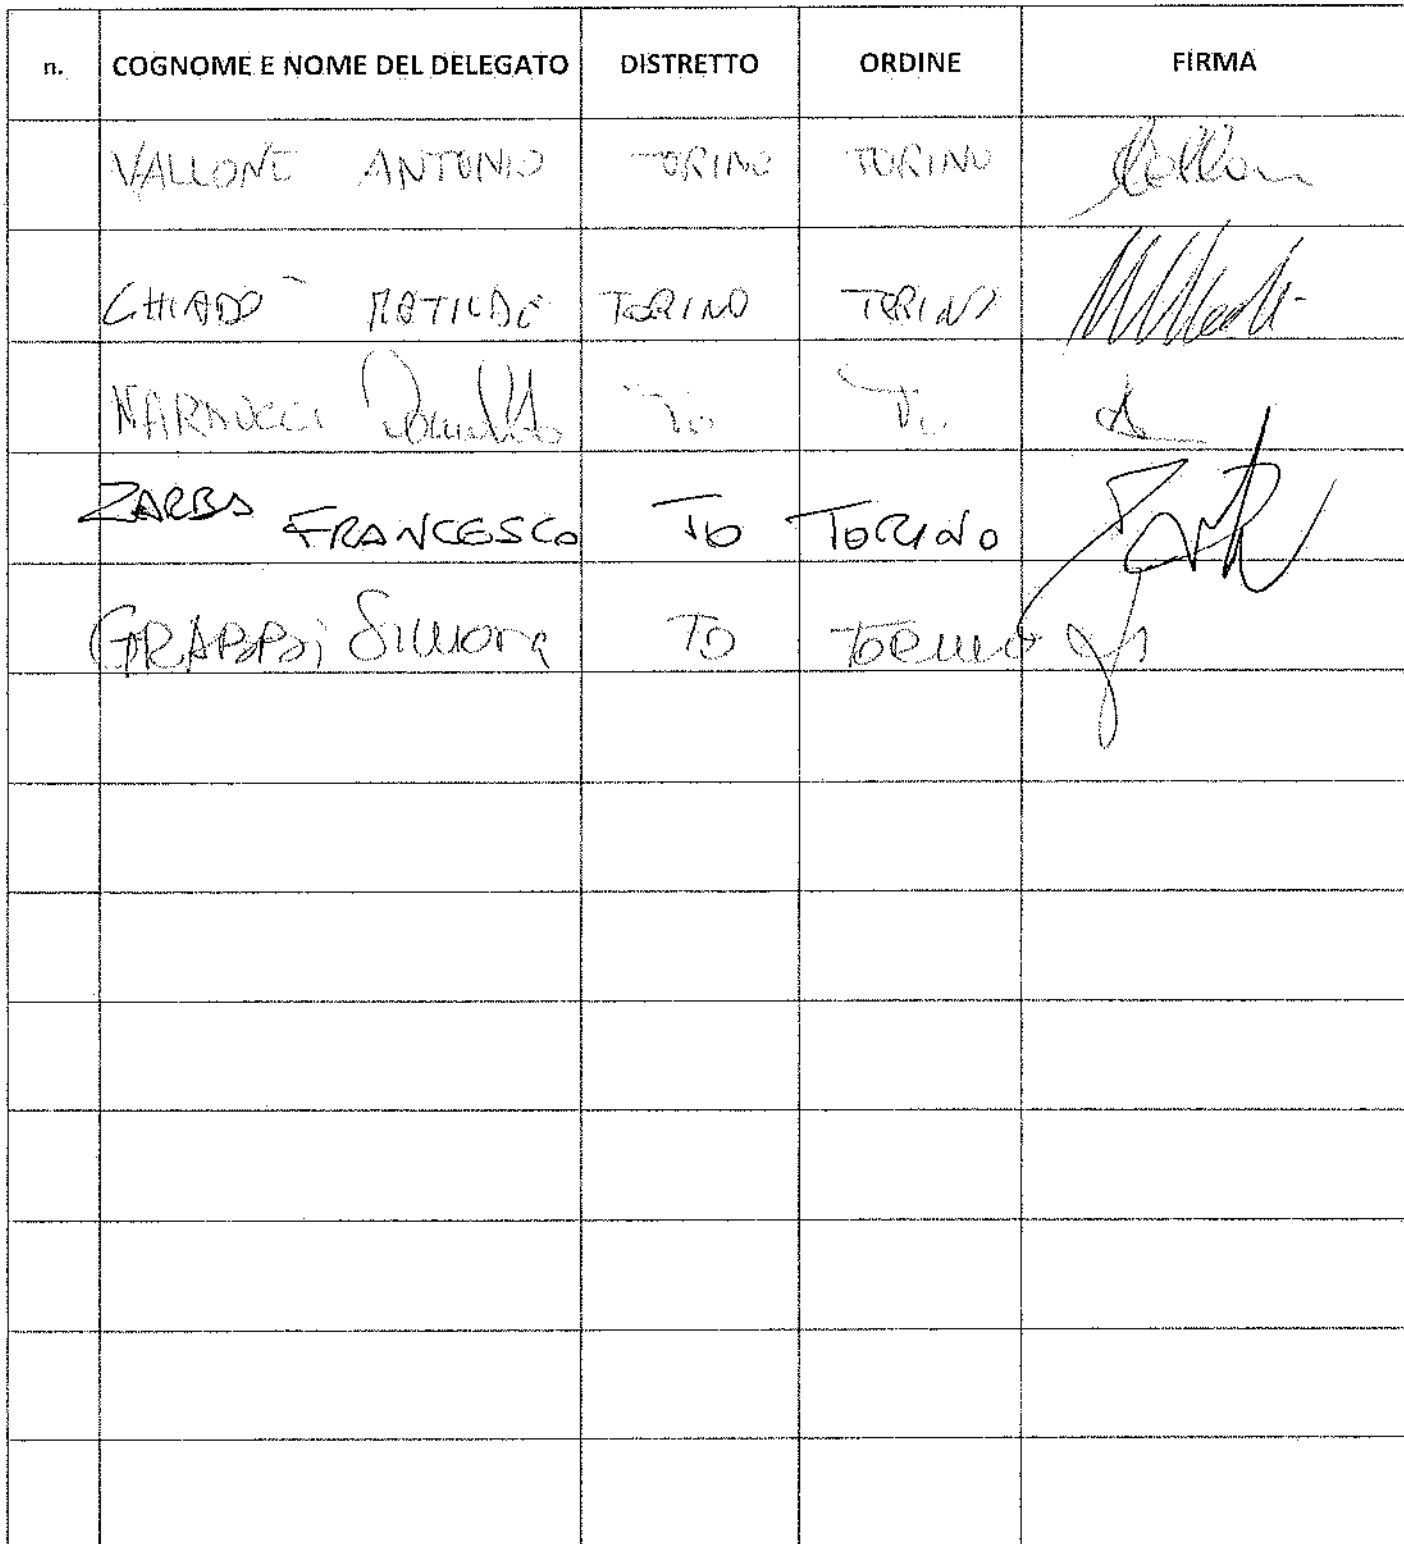 n. COGNOME E NOME DEL DELEGATO DISTRETTO ORDINE FIRMA
VALLONE ANTONIO TORINO TORINO
CHIADO` MATILDE TORINO TORINO
NARDUCCI To To
ZARBA FRANCESCO TO TORINO
GRABBI Simona TO TORINO